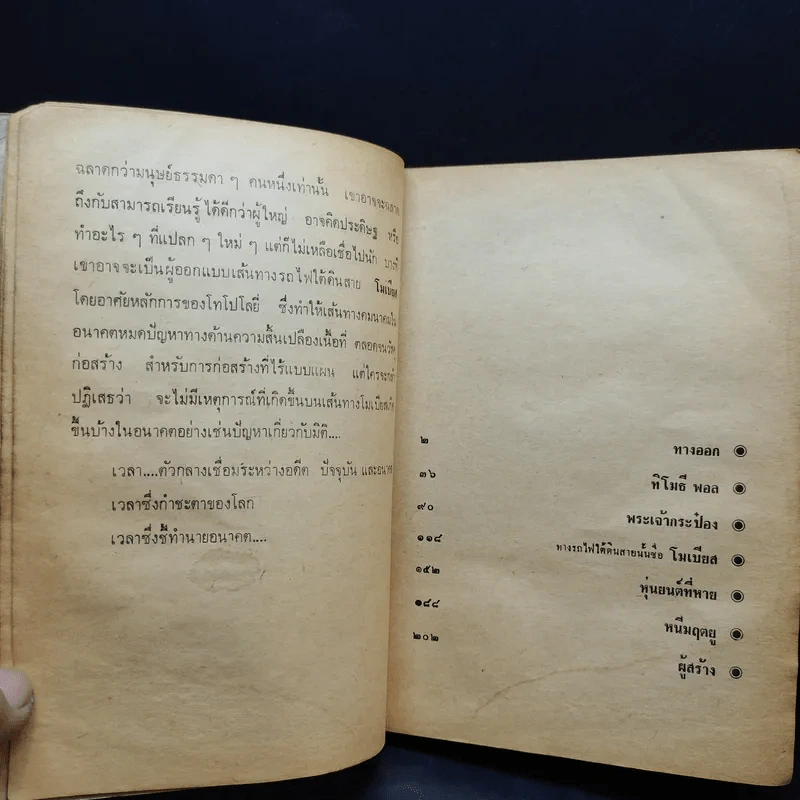 ฉลาดกว่ามนุษย์ธรรมดา ๆ คนหนึ่งเท่านั้น เขาอาจจะฉลาด
ถึงกับสามารถเรียนรู้ได้ดีกว่าผู้ใหญ่ อาจคิดประดิษฐ หรือ
ทำอะไร ๆ ที่แปลก ๆ ใหม่ ๆ แต่ก็ไม่เหลือเชื่อไปนัก บางที
เขาอาจจะเป็นผู้ออกแบบเส้นทางรถไฟใต้ดินสาย โมเบียส
โดยอาศัยหลักการของโทโปโลยี่ ซึ่งทำให้เส้นทางคมนาคมใน
อนาคตหมดปัญหาทางด้านความสิ้นเปลืองเนื้อที่ ตลอดจนวัสดุ
ก่อสร้าง สำหรับการก่อสร้างที่ไร้แบบแผน แต่ใครจะกล้า
ปฏิเสธว่า จะไม่มีเหตุการณ์ที่เกิดขึ้นบนเส้นทางโมเบียส
ขึ้นบ้างในอนาคตอย่างเช่นปัญหาเกี่ยวกับมิติ....
เวลา....ตัวกลางเชื่อมระหว่างอดีต ปัจจุบัน และอนาคต
เวลาซึ่งกำชะตาของโลก
เวลาซึ่งชี้ทำนายอนาคต....
๒ ทางออก
๓๖ ทิโมธี พอล
๙๐ พระเจ้ากระป๋อง
๑๑๘ ทางรถไฟใต้ดินสายนั้นชื่อ โมเบียส
๑๕๒ หุ่นยนต์ที่หาย
๑๘๘ หนีมฤตยู
๒๐๒ ผู้สร้าง